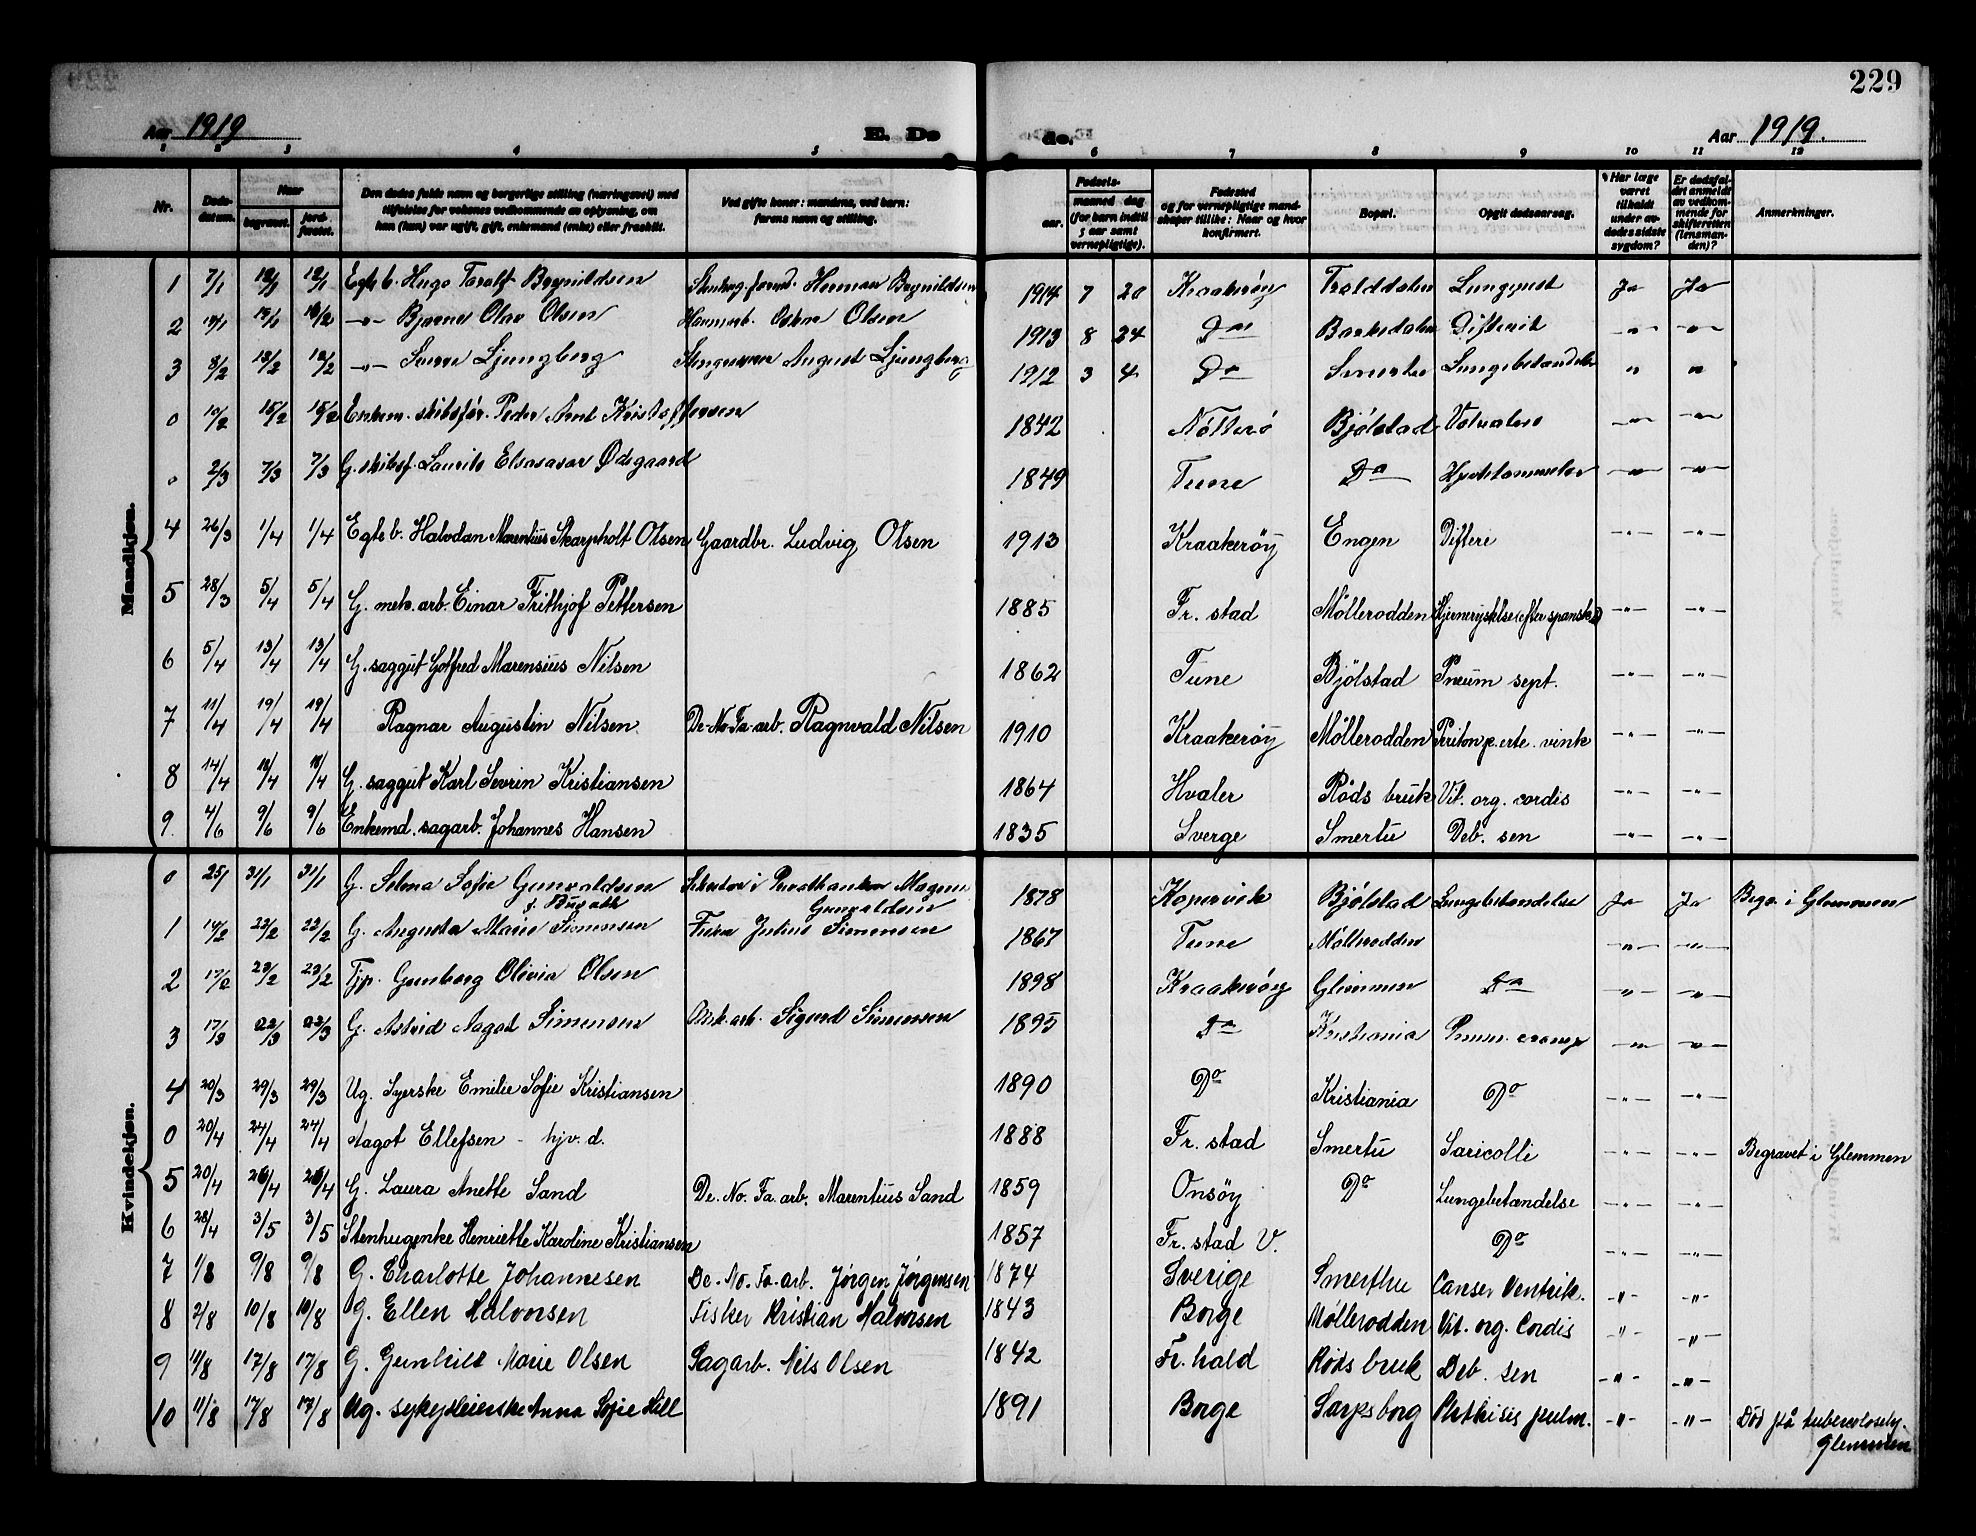 229
Aar 1919 E. Dø
de. Aar 1919.
1 2 3 4 5 6 7 8 9 10 11 12
Nr. Døds-datum. Naar begravet. jord-fæstet. Den dødes fulde navn og borgerlige stilling (næringsvei) med tilføielse for voksnes vedkommende av oplysning, om han (hun) var ugift, gift, enkemand (enke) eller fraskilt. Ved gifte koner: mandens, ved barn: farens navn og stilling. Fødsels- aar. maaned - dag (for barn indtil 5 aar samt vernepligtige). Fødested og for vernepligtige mand-skaper tillike: Naar og hvor konfirmert. Bopæl. Opgit dødsaarsag. Har læge været tilkaldt under av-dødes sidste sygdom? Er dødsfal-det anmeldt av vedkom-mende for skifteretten (lensman-den)? Anmerkninger.
Mandkjøn.
1 7/1 12/1 12/1 Egte b. Hugo Toralf Brynildsen Herman Brynildsen 1914 7 20 Kraakerøy Trolddalen Ja Ja
2 Bjarne Olav Olsen Olsen 1913 8 24 Do Difterit -"- -"-
3 8/2 12/2 12/2 -"- Sverre Ljungberg August Ljungberg 1912 3 4 Do Lungebetændelse " "
0 10/2 15/2 15/2 Enkem. skibsfør. Peder Kristoffersen 1842 Nøtterø Bjølstad -"- -"-
0 2/3 7/3 7/3 G. skibsf. Laurits Ødegaard 1849 Tune Do -"- -"-
4 26/3 1/4 1/4 Egte b. Halvdan Marentius Skarpholt Olsen Gaardbr. Ludvig Olsen 1913 Kraakerøy Engen Difteri -"- -"-
5 28/3 5/4 5/4 G. mek. arb. Einar Frithjof Pettersen 1885 Fr. stad Møllerodden (efter spansk -"- -"-
6 5/4 13/4 13/4 G. saggut Gotfred Marensius Nilsen 1862 Tune Bjølstad Pneum sept. -"- -"-
7 11/4 19/4 19/4 Ragnar Augustin Nilsen De-No-Fa-arb. Ragnvald Nilsen 1910 Kraakerøy Møllerodden -"- -"-
8 14/4 18/4 18/4 G. saggut Karl Sevrin Kristiansen 1864 Hvaler Røds bruk Vit. org. cordis -"- -"-
9. 4/6 9/6 9/6 Enkemd. sagarb. Johannes Hansen 1835 Sverge Smertu Deb. sen -"- -"-
Kvindekjøn.
0 25/ 31/1 31/1 G. Selma Sofie Gunvaldsen Magnus 1878 Kopervik Bjølstad Lungebetændelse Ja Ja Begr. i Glemmen
Gunvaldsen
1 14/2 22/2 22/2 G. Augusta Marie Simensen Julius Simensen 1867 Tune Møllerodden -"- -"-
2 17/2 23/2 23/2 Tjp. Gunborg Olivia Olsen 1898 Kraakerøy Glemmen Do -"- -"-
3 17/3 22/3 22/3 G. Astrid Aagot Simensen Sigurd Simensen 1895 Do Kristiania -"- -"-
4 20/3 29/3 29/3 Ug. Syerske Emilie Sofie Kristiansen 1890 Do Kristiania Do -"- -"-
0 20/4 24/4 24/4 Aagot Ellefsen - hjv. d. 1888 Fr. stad Smertu Saricolli -"- -"- Begravet i Glemmen
5 20/4 26/4 26/4 G. Laura Anette Sand De. No. Fa. arb. Marentius Sand 1859 Onsøy Do Lungebetændelse -"- -"-
6 28/4 3/5 3/5 Stenhugenke Henriette Karoline Kristiansen 1857 Fr. stad V. Do -"- -"-
7 1/8 9/8 9/8 G. Charlotte Johannesen De. No. Fa. arb. Jørgen Jørgensen 1874 Sverige Smerthu Canser Ventrik. -"- -"-
8 2/8 10/8 10/8 G. Ellen Halvorsen Fisker Kristian Halvorsen 1843 Borge Møllerodden Vit. org. Cordis -"- -"-
9 11/8 17/8 17/8 G. Gunhild Marie Olsen Sagarb. Nils Olsen 1842 Fr. hald Røds bruk Deb. sen -"- -"-
10 11/8 17/8 17/8 Ug. sykepleierske Anna Sofie Hill 1891 Borge Sarpsborg Phthisis pulm. -"- -"- Død på tuberculosehj.
Glemmen